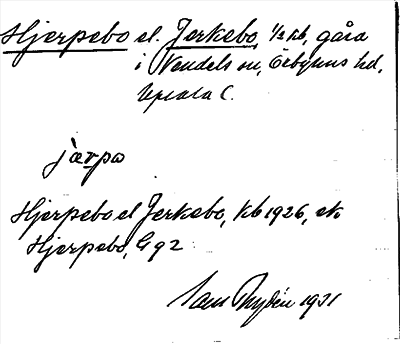 Hjerpebo el. Jerkebo, 1/2 kb, gåra
i Vendels sn, Örbyhus hd,
Upsala C.
järpa
Hjerpebo el Jerkebo, kb 1926, ek.
Hjerpebo, G 92
1931